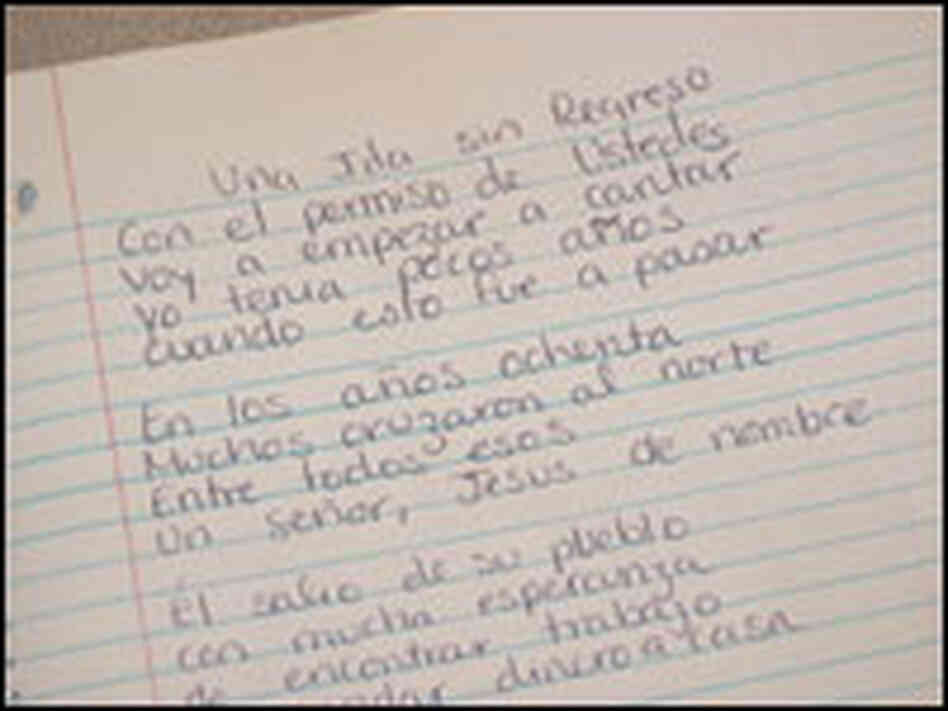 Una Ida sin Regreso
Con el permiso de Ustedes
voy a empezar a cantar
yo tenia pocos años
cuando esto fue a pasar
En los años ochenta
Muchos cruzaron al norte
Entre todos esos
un señor, Jesus de nombre
él salio de su pueblo
con mucha esperanza
de encontrar trabajo
dinero a casa